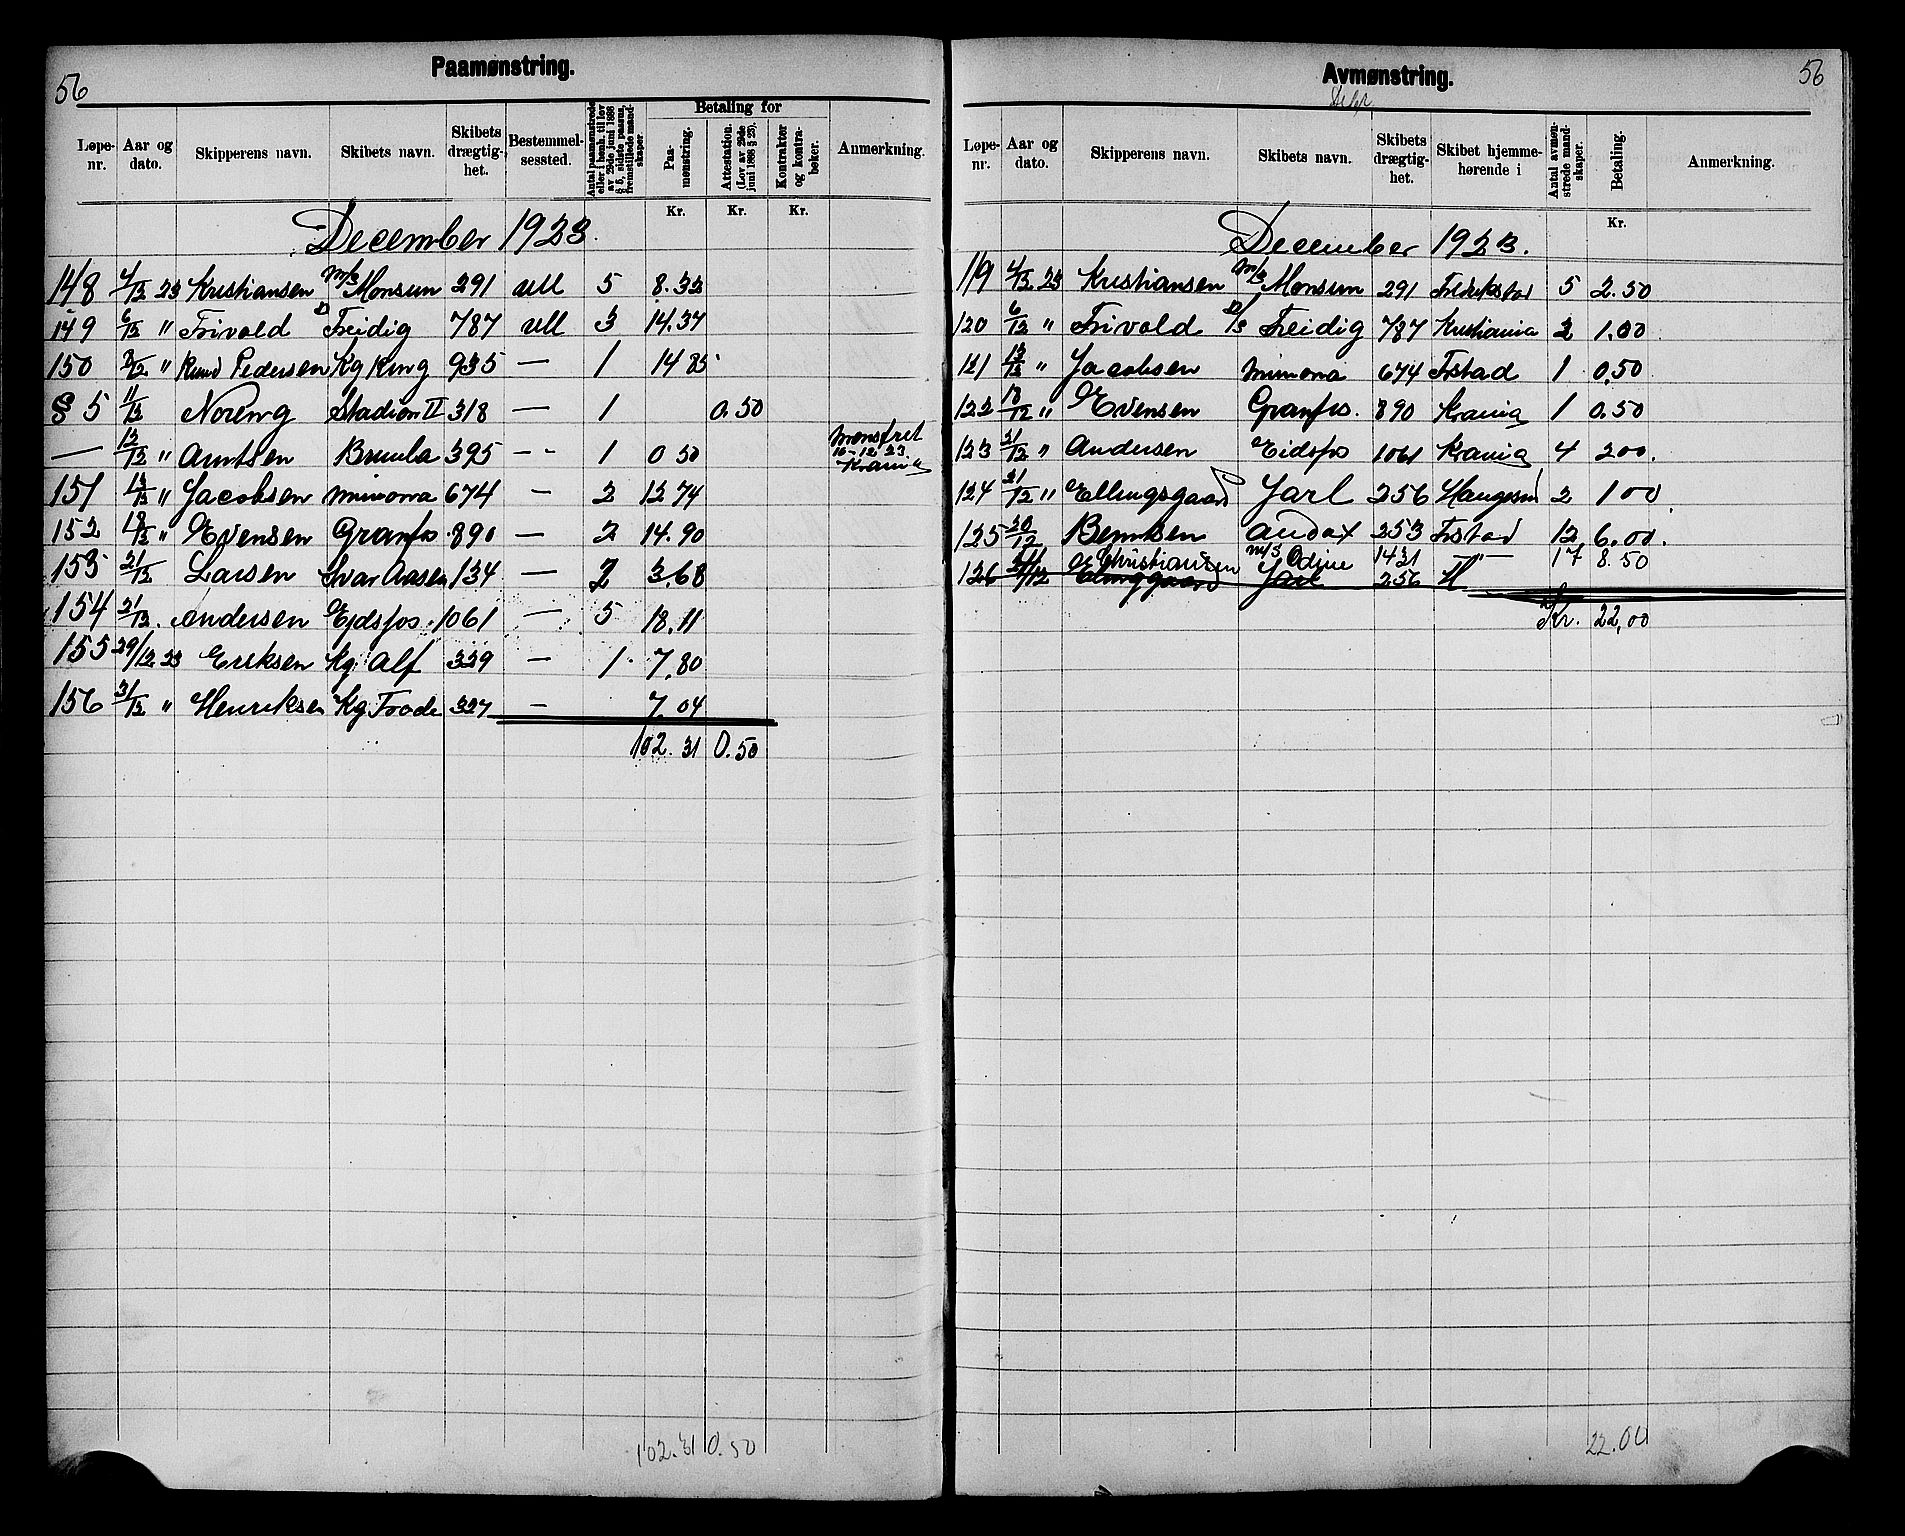 56
Paamønstring.
Løpe-nr. Aar og dato. Skipperens navn. Skibets navn. Skibets drægtig-het. Bestemmel-sessted. Antal paamønstrede eller i henh. til lov av 29de juni 1888 § 5, sidste passus, fremstillede mand-skaper Betaling for Anmerkning.
Paa-mønstring. Attestation. (Lov av 29de juni 1888 § 23). Kontrakter og kontra-bøker.
Kr. Kr. Kr.
December 1923.
148 4/12 23 Kristiansen M/S Monsun 291 Utl 5 8.32
149 6/12 " Trivold D Freidig 787 Utl 3 14.37
150 8/12 " Knud Pedersen Kg Ring 935 — 1 14 85
§ 5 11/12 Noreng Stadion II 318 — 1 0.50
— 12/12 " Arntsen Brumla 395 — 1 0 50 Mønstret 10-12 23 Krania
151 13/12 " Jacobsen Mimona 674 — 2 12 74
152 18/12 " Evensen Granfos 890 — 2 14.90
153 21/12 Larsen Ivar Aasen 134 — 2 3.68
154 21/12. Andersen Eidsfos 1061 — 5 18.11
155 29/12 23 Eriksen Kg Alf 329 — 1 7.80
156 31/12 " Henriksen Kg Frode 327 — 7.04
102.31 0.50
102.31 0.50
56
Avmønstring.
Løpe-nr. Aar og dato. Skipperens navn. Skibets navn. Skibets drægtig-het. Skibet hjemme-hørende i Antal avmøn-strede mand-skaper. Betaling. Anmerkning.
Kr.
December 1923.
119 4/12 23 Kristiansen M/S Monsun 291 Fredrikstad 5 2.50
120 6/12 " Trivold D/S Freidig 787 Kristiania 2 1.00
121 13/12 " Jacobsen Mimona 674 Frstad 1 0.50
122 18/12 " Evensen Granfos. 890 Krania 1 0.50
123 21/12 " Andersen Eidsfos 1061 Krania 4 2 00.
124 21/12 " Ellingsgaard Jarl 256 Haugesund 2 1 00
125 20/12 Berntsen Audax 253 Frstad 12 6.00.
Christiansen M/S Odine 1431 — " — 17 8.50
126 31/12 Elinggaard Jarl 256 H
Kr. 22,00
22.00